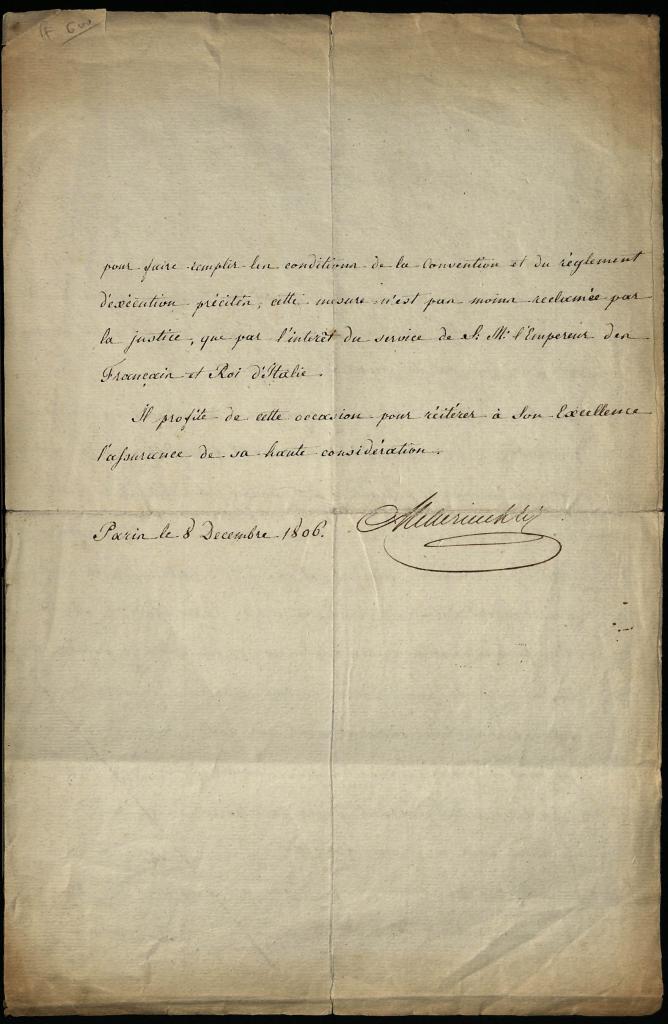 pour faire remplir les conditions de la Convention et du règlement
d'exécution précités, cette mesure n'est pas moins reclamée par
la justice, que par l'intérêt du service de S. M. l'Empereur des
Français et Roi d'Italie.
Il profite de cette occasion pour réitérer à Son Excellence
l'assurance de sa haute considération.
Paris le 8 Decembre 1806.